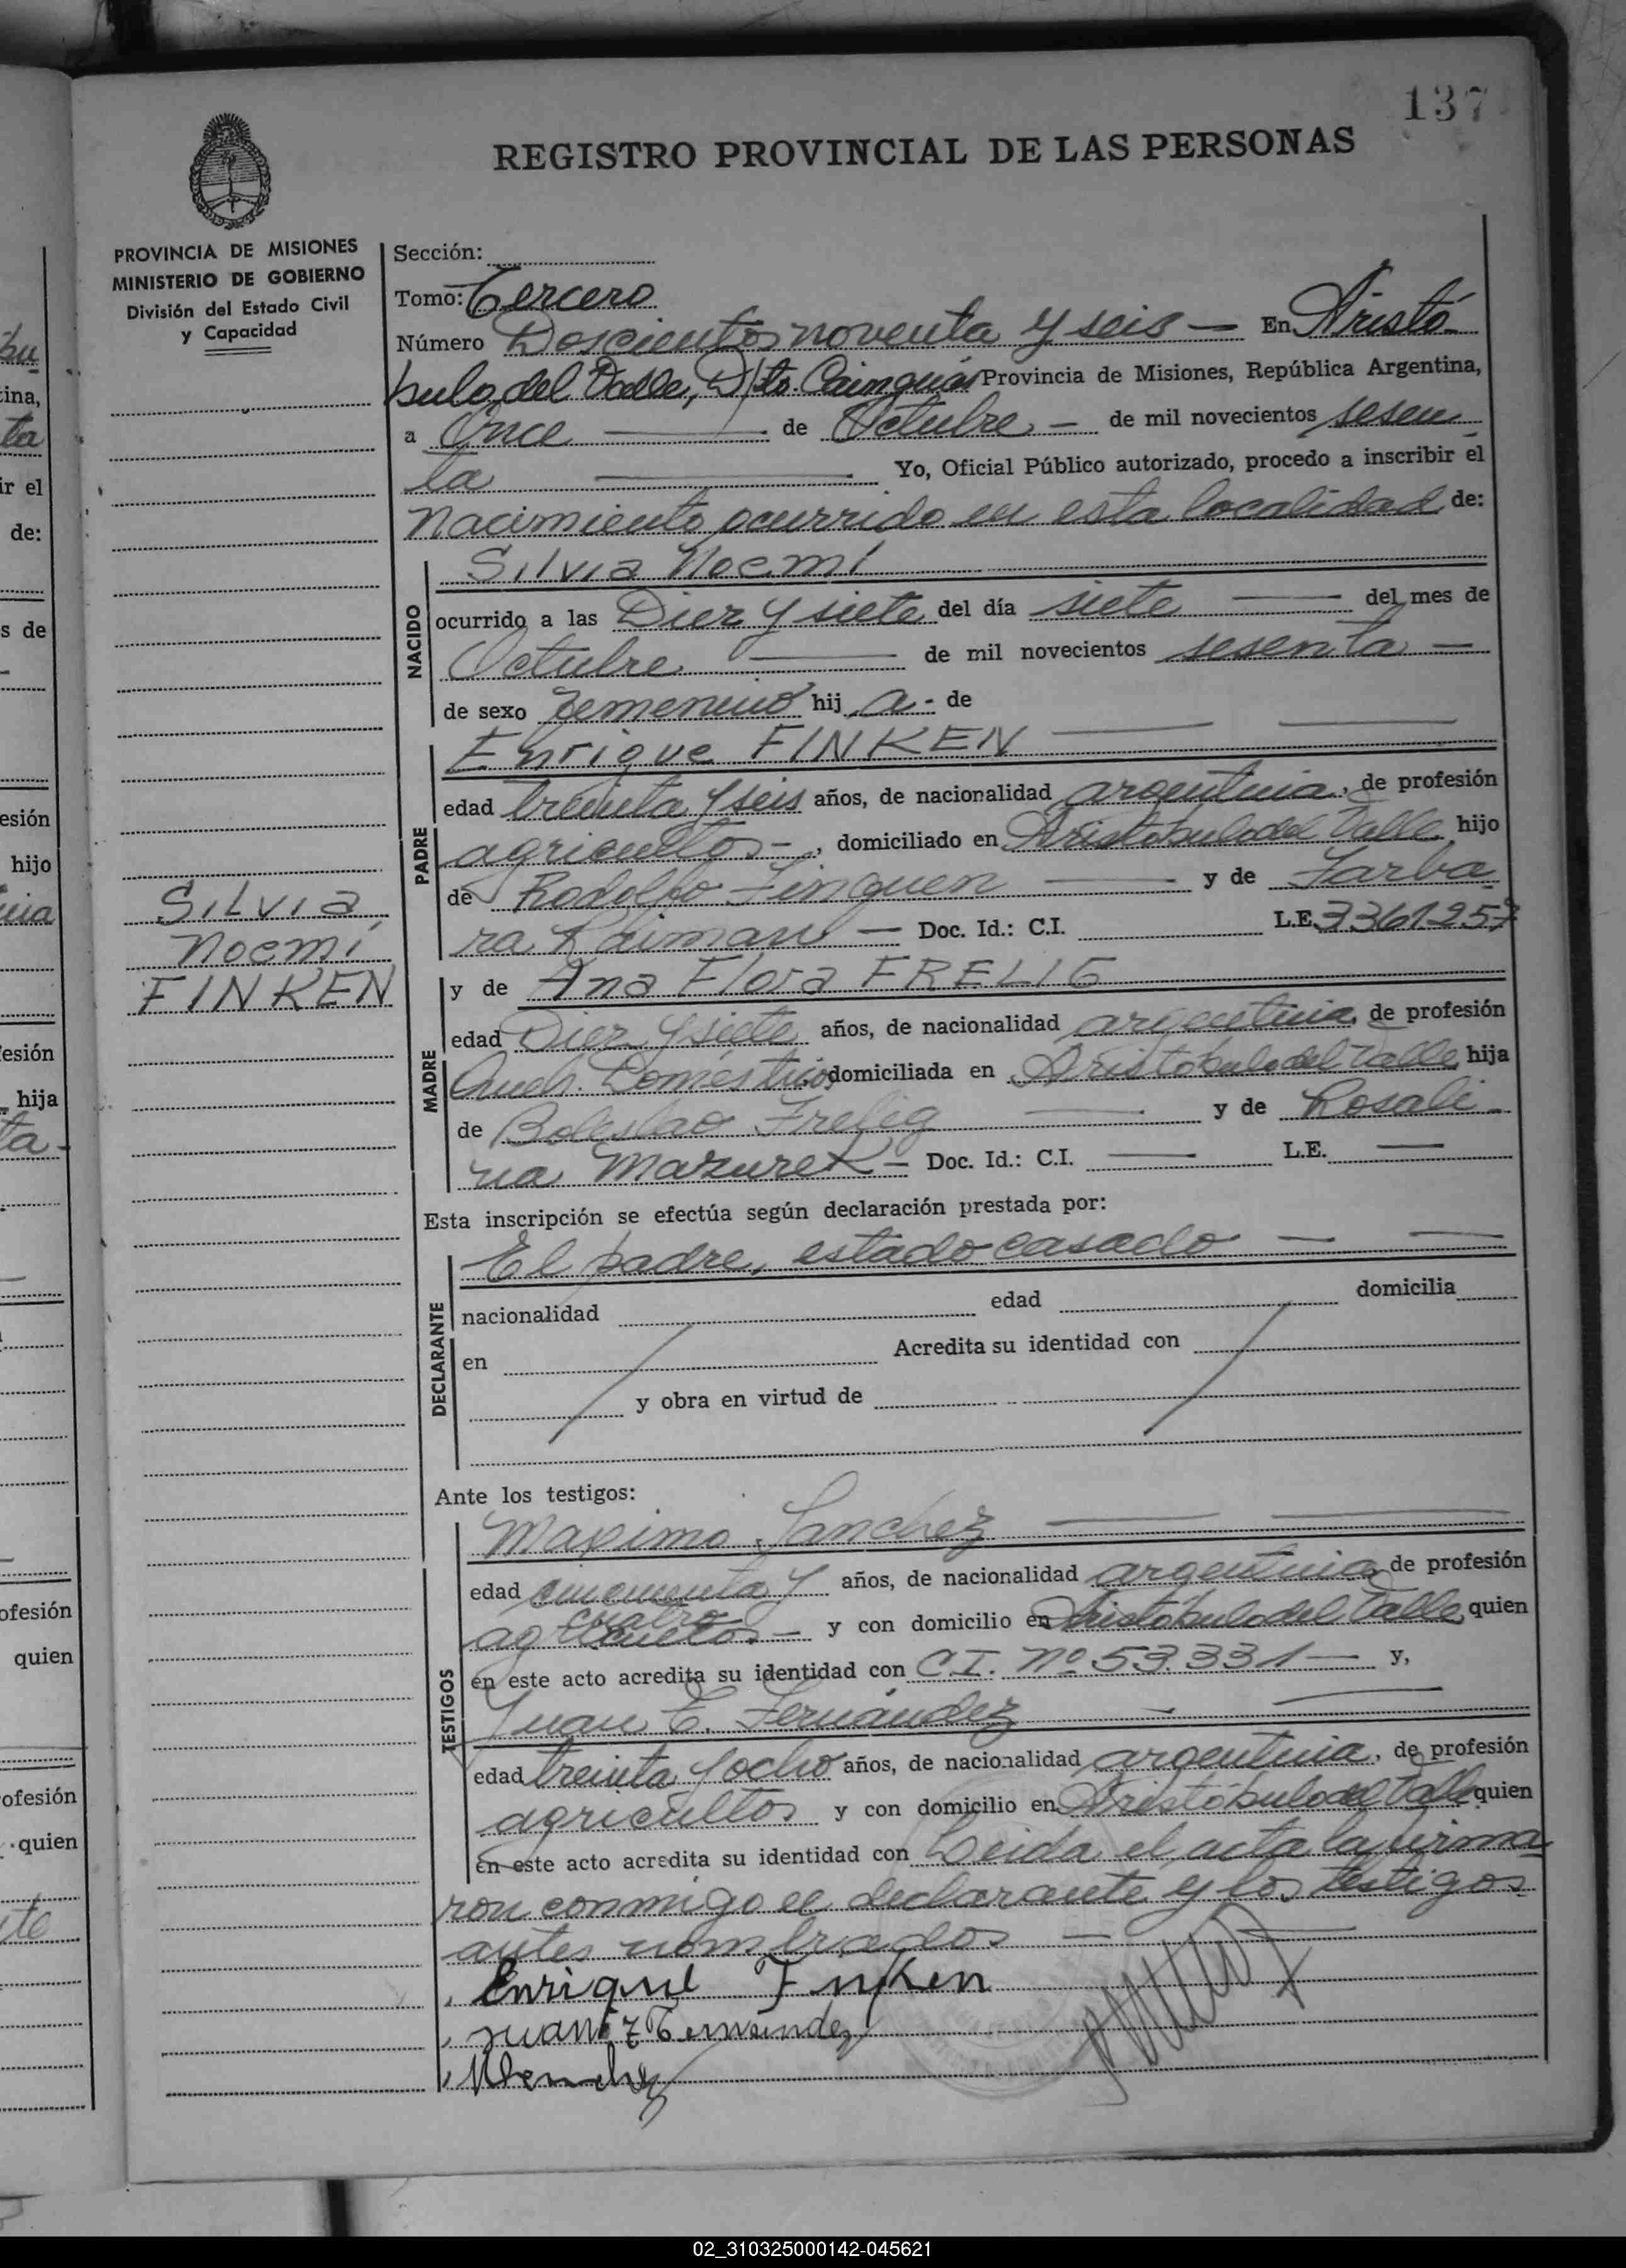 137
REGISTRO PROVINCIAL DE LAS PERSONAS
PROVINCIA DE MISIONES
MINISTERIO DE GOBIERNO
División del Estado Civil
y Capacidad
Sección:
Tomo: Tercero
Número Doscientos noventa y seis — En Aristó
bulo del Valle, D/to. Cainguás Provincia de Misiones, República Argentina,
a Once — de Octubre — de mil novecientos sesen
ta — Yo, Oficial Público autorizado, procedo a inscribir el
nacimiento ocurrido en esta localidad de:
NACIDO
Silvia Noemí
ocurrido a las Diez y siete del día siete — del mes de
Octubre — de mil novecientos sesenta —
de sexo femenino hij a - de
PADRE
Enrique FINKEN — —
edad treinta y seis años, de nacionalidad argentina, de profesión
agricultor -, domiciliado en Aristóbulo del Valle hijo
de Rodolfo Finquen — y de Barba
ra Raimann — Doc. Id.: C.I. L.E. 3361257
Silvia
Noemí
FINKEN
MADRE
y de Ana Flora FRELIG
edad Diez y siete años, de nacionalidad argentina, de profesión
Queh. Domésticos domiciliada en Aristóbulo del Valle hija
de Boleslao Frelig — y de Rosali
na Mazurek — Doc. Id.: C.I. — L.E. —
Esta inscripción se efectúa según declaración prestada por:
DECLARANTE
El padre, estado casado — —
nacionalidad edad domicilia
en Acredita su identidad con
y obra en virtud de
Ante los testigos:
TESTIGOS
Maximo Sanchez — —
edad cincuenta y años, de nacionalidad argentina de profesión
cuatro
agricultor — y con domicilio en Aristóbulo del Valle quien
en este acto acredita su identidad con C.I. Nº 53.331 — y,
Juan E. Fernández — —
edad treinta y ocho años, de nacionalidad argentina, de profesión
agricultor y con domicilio en Aristóbulo del Valle quien
en este acto acredita su identidad con Leida el acta la firma
ron conmigo el declarante y los testigos
antes nombrados —
Enrique Finken
02_310325000142-045621